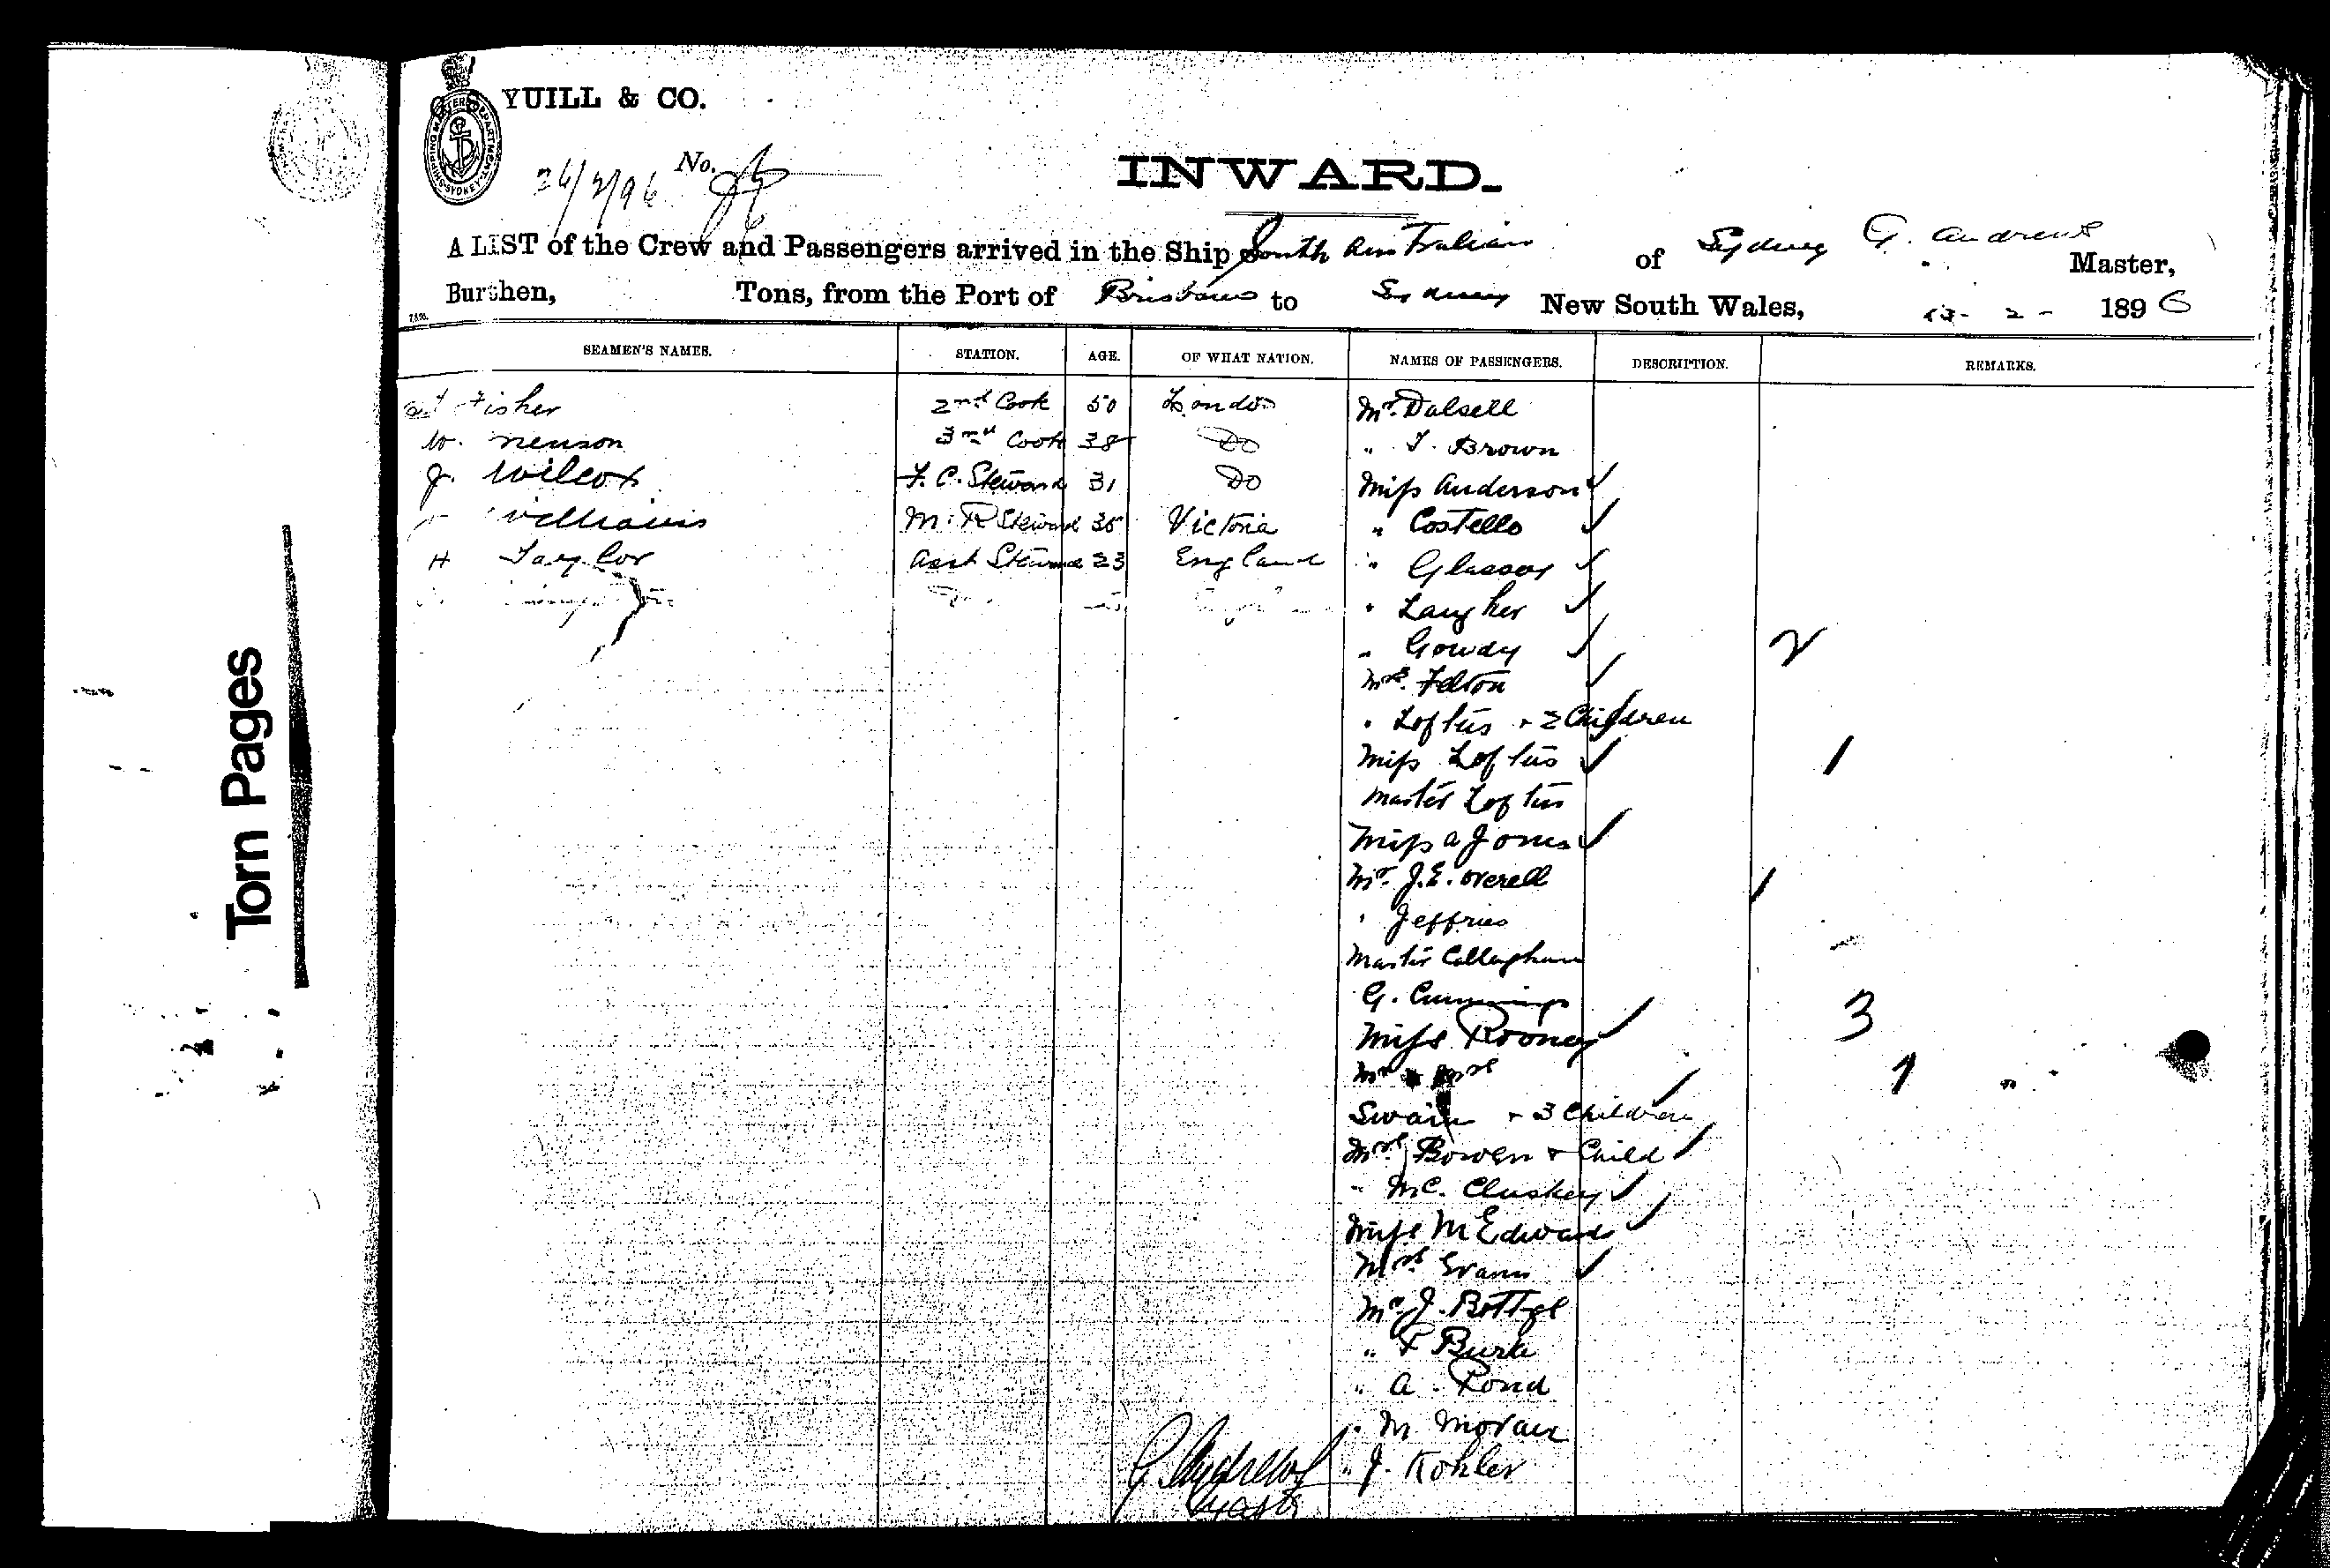 YUILL & CO.
No.
INWARD.
A LIST of the Crew and Passengers arrived in the Ship South Australian of Sydney G. Andrews Master,
Burthen, Tons, from the Port of Brisbane to Sydney New South Wales, 13 - 2 - 1896
SEAMEN'S NAMES. STATION. AGE. OF WHAT NATION. NAMES OF PASSENGERS. DESCRIPTION. REMARKS.
Fisher 2nd Cook 50 London Mr. Dalsell
W. Nenson 3rd Cook 38 Do " T. Brown
J. Wilcox F. C. Steward 31 Do Miss Anderson
Williams M. R Steward 35 Victoria " Costello
H Taylor Asst Steward 23 England " Glassoy
" Laugher
" Gowdy 2
Mrs. Felton
" Loftus + 2 Children
Miss Loftus 1
Master Loftus
Miss A Jones
Mr. J. E. Overell
" Jeffries
Master Callaghan
G. Cummings 3
Miss Rooney
Mr & Mrs 1 "
Swain + 3 Children
Mrs. Bowen + Child
" Mc. Cluskey
Miss M Edwards
Mrs Evans
Mr. J. Bottgl
" F Burke
" A. Pond
" M Moran
G. Andrews " J. Kohler
Master
Torn Pages